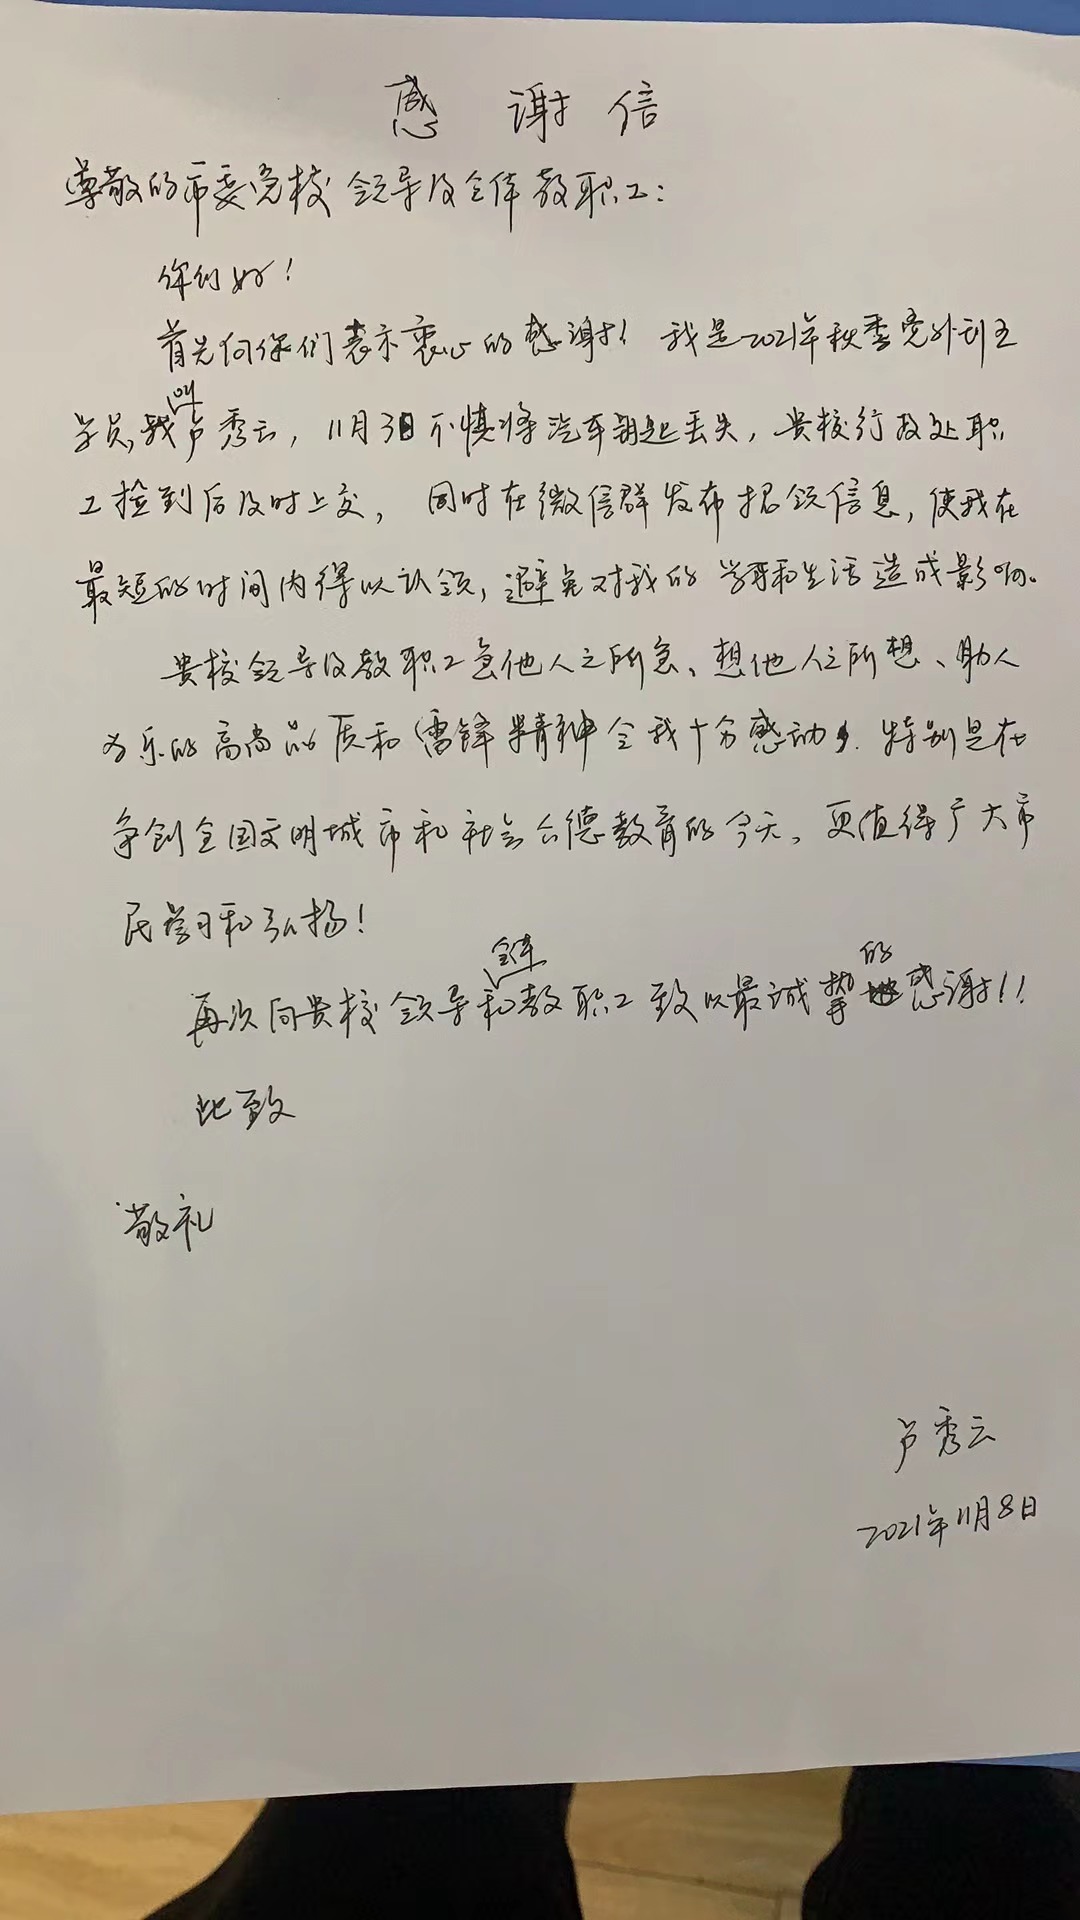 感谢信
尊敬的市委党校领导及全体教职工:
你们好!
首先向你们表示衷心的感谢! 我是2021年秋季党外
学员,我叫卢秀云, 11月3日不慎将汽车钥匙丢失, 贵校行政处职
工捡到后及时上交, 同时在微信群发布招领信息, 使我在
最短的时间内得以认领, 避免对我的学习和生活造成影响。
贵校领导及教职工急他人之所急、想他人之所想、助人
为乐的高尚品质和雷锋精神令我十分感动, 特别是在
争创全国文明城市和社会公德教育的今天, 更值得广大市
民学习和弘扬!
再次向贵校领导和全体教职工致以最诚挚的感谢!!
此致
敬礼
卢秀云
2021年11月8日